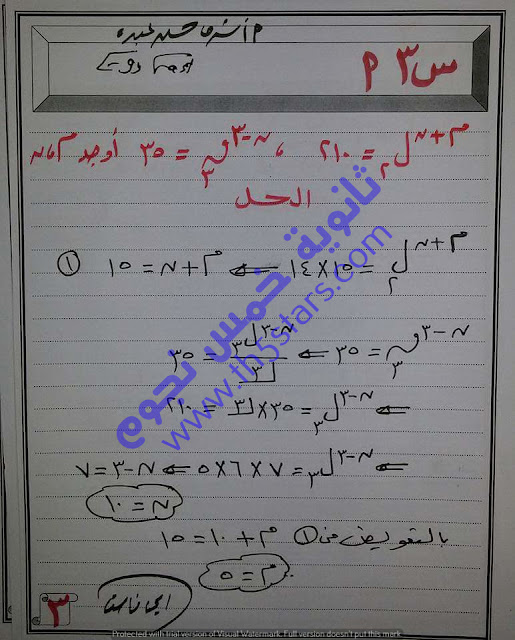 م / أشرف حسن عبده
س ٣ م
م+ن ل ٢ = ٢١٠ ، ن-٣ ق ٣ = ٣٥ أوجد م ، ن
الحل
م+ن ل ٢ = ١٥ × ١٤ ⇐ م + ن = ١٥ ①
ن-٣ ق ٣ = ٣٥ ⇐ ن-٣ ل ٣ / ٣ = ٣٥
⇐ ن-٣ ل ٣ = ٣٥ × ٣ = ٢١٠
⇐ ن-٣ ل ٣ = ٧ × ٦ × ٥ ⇐ ن - ٣ = ٧
ن = ١٠
بالتعويض من ① م + ١٠ = ١٥
م = ٥
٣
ثانوية خمس نجوم
www.th5stars.com
Protected with trial version of Visual Watermark. Full version doesn't put this mark.